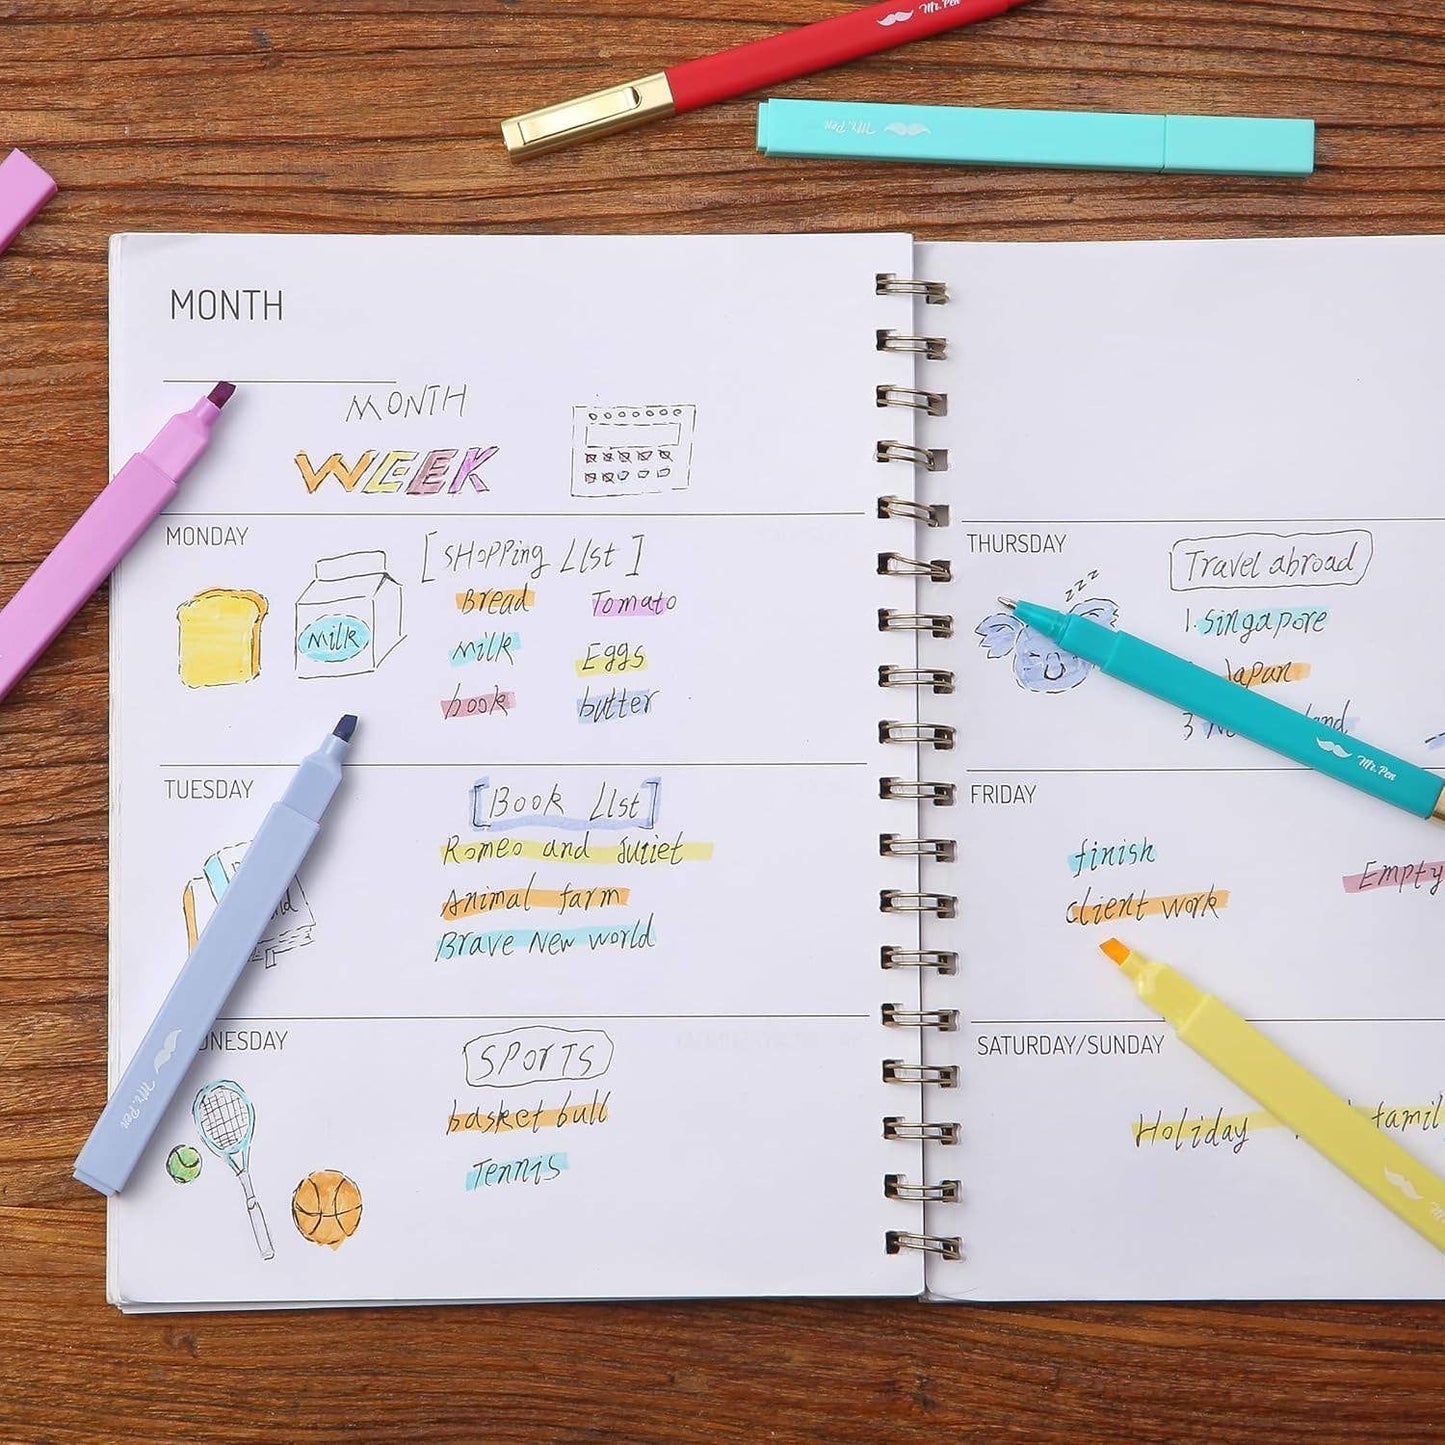 Mr. Pen
Mr. Pen
MONTH
MONTH
WEEK
MONDAY
[SHOPPING LIST]
Bread Tomato
milk Eggs
book butter
MilK
TUESDAY
[Book LIst]
Romeo and Juliet
Animal farm
Brave New world
NESDAY
SPorTs
basket ball
Tennis
Mr. Pen
THURSDAY
zzz
Travel abroad
1. singapore
Japan
3
Mr. Pen
FRIDAY
finish
client work
Empty
SATURDAY/SUNDAY
Holiday famil